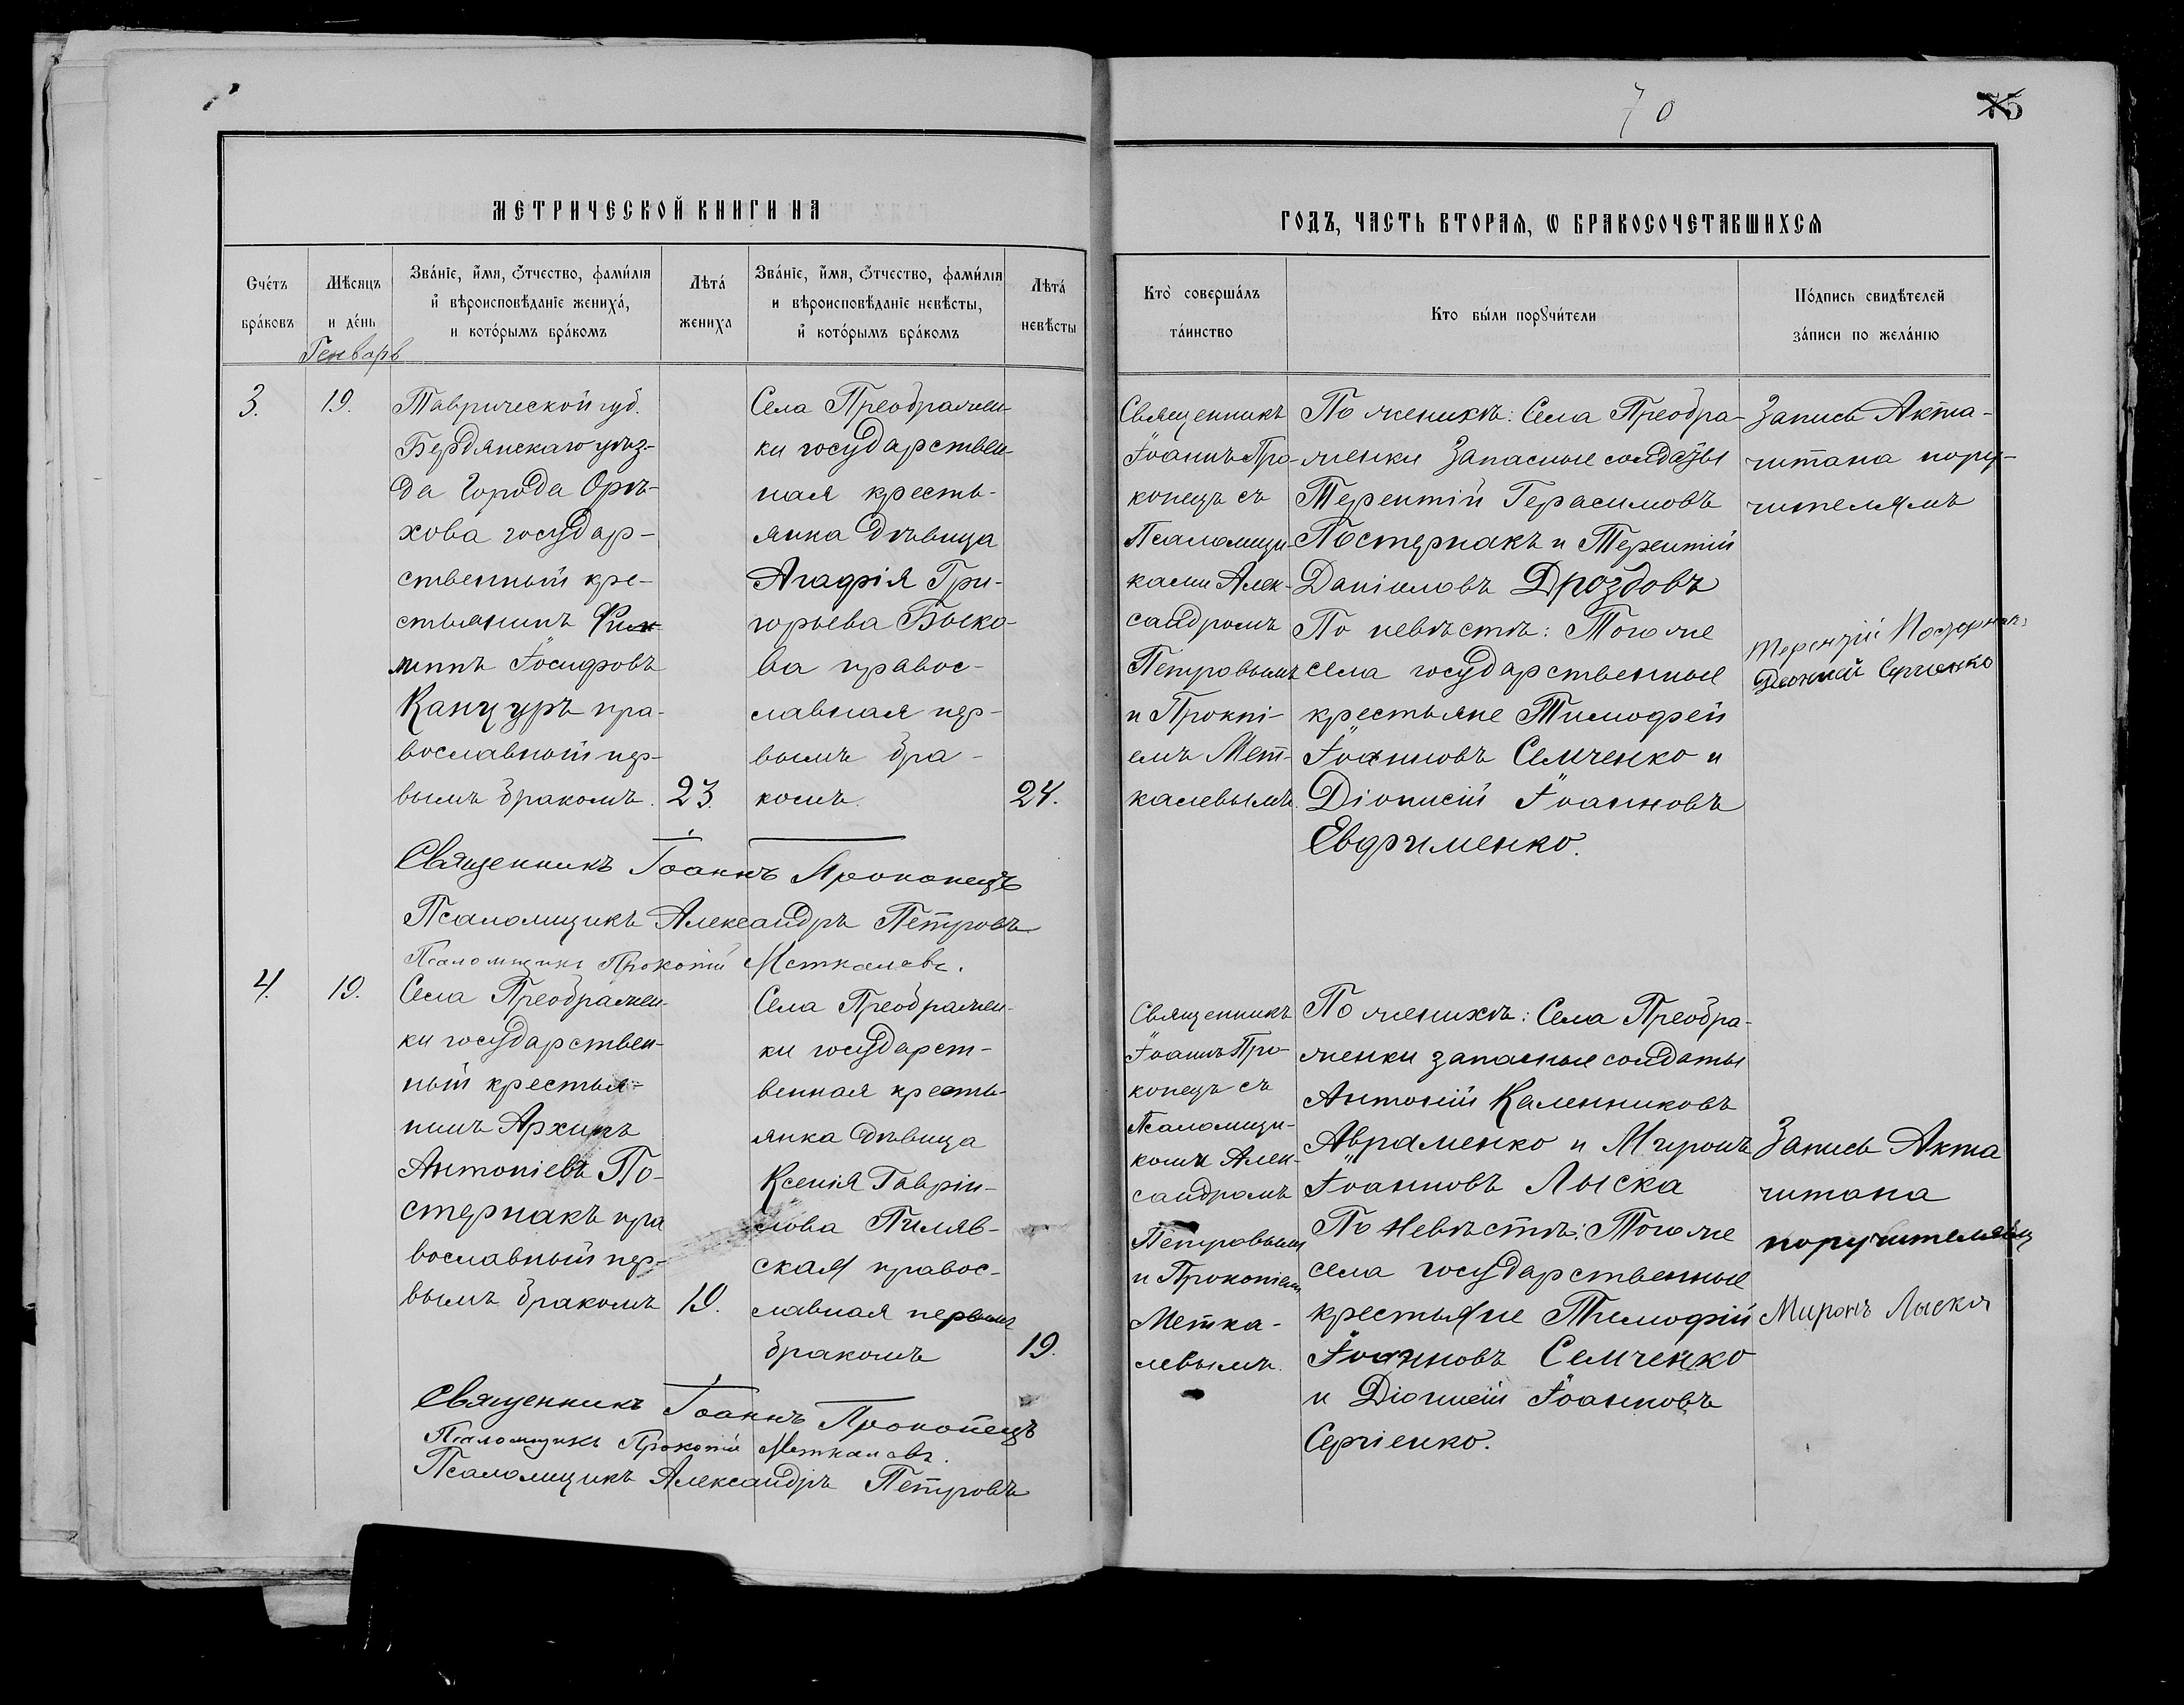 70
75
МЕТРИЧЕСКОЙ КНИГИ НА
ГОДЪ, ЧАСТЬ ВТОРАЯ, Ѡ БРАКОСОЧЕТАВШИХСЯ
Счетъ
браковъ
Мѣсяцъ
и день
Генварь
Званіе, имя, отчество, фамилія
и вѣроисповѣданіе жениха,
и которымъ бракомъ
Лѣта
жениха
Званіе, имя, отчество, фамилія
и вѣроисповѣданіе невѣсты,
и которымъ бракомъ
Лѣта
невѣсты
Кто совершалъ
таинство
Кто были порꙋчители
Подпись свидѣтелей
записи по желанію
3.
19.
Таврической губ.
Бердянскаго уѣз-
да Города Орѣ-
хова государ-
ственный кре-
стьянинъ Фил-
липпъ Іосифовъ
Канцуръ пра-
вославный пер-
вымъ бракомъ.
23.
Села Преображен-
ки государствен-
ная кресть-
янка дѣвица
Агафія Гри-
горьева Быко-
ва правос-
лавная пер-
вымъ бра-
комъ.
24.
Священникъ
Іоаннъ Про-
копецъ съ
Псаломщи-
ками Алек-
сандромъ
Петровымъ
и Прокпі-
емъ Мет-
калевымъ.
По женихѣ: Села Преобра-
женки Запасные солдаты
Терентій Герасимовъ
Постернакъ и Терентій
Даніиловъ Дроздовъ
По невѣстѣ: Того же
села государственные
крестьяне Тимофей
Іоанновъ Семченко и
Діонисій Іоанновъ
Евфименко.
Запись Акта
читана пору-
чителямъ
Терентій Постернакъ
Сергіенко
Священникъ Іоаннъ Прокопецъ
Псаломщикъ Александръ Петровъ
Псаломщикъ Прокопій Меткалевъ.
4.
19.
Села Преображен-
ки государствен-
ный крестья-
нинъ Архипъ
Антоніевъ По-
стернакъ пра
вославный пер-
вымъ бракомъ
19.
Села Преображен-
ки государст-
венная кресть-
янка дѣвица
Ксенія Гавріи-
лова Пиляв-
ская правос-
лавная первымъ
бракомъ
19.
Священникъ
Іоаннъ Про-
копецъ съ
Псаломщи-
комъ Алек-
сандромъ
Петровымъ
и Прокопіемъ
Метка-
левымъ.
По женихѣ: Села Преобра-
женки запасные солдаты
Антоній Каленниковъ
Авраменко и Миронъ
Іоанновъ Лыска
По Невѣстѣ: Того же
села государственные
крестьяне Тимофій
Іоанновъ Семченко
и Діонисій Іоанновъ
Сергіенко.
Запись Акта
читана
поручителямъ
Миронъ Лыска
Священникъ Іоаннъ Прокопецъ
Псаломщикъ Прокопій Меткалевъ.
Псаломщикъ Александръ Петровъ